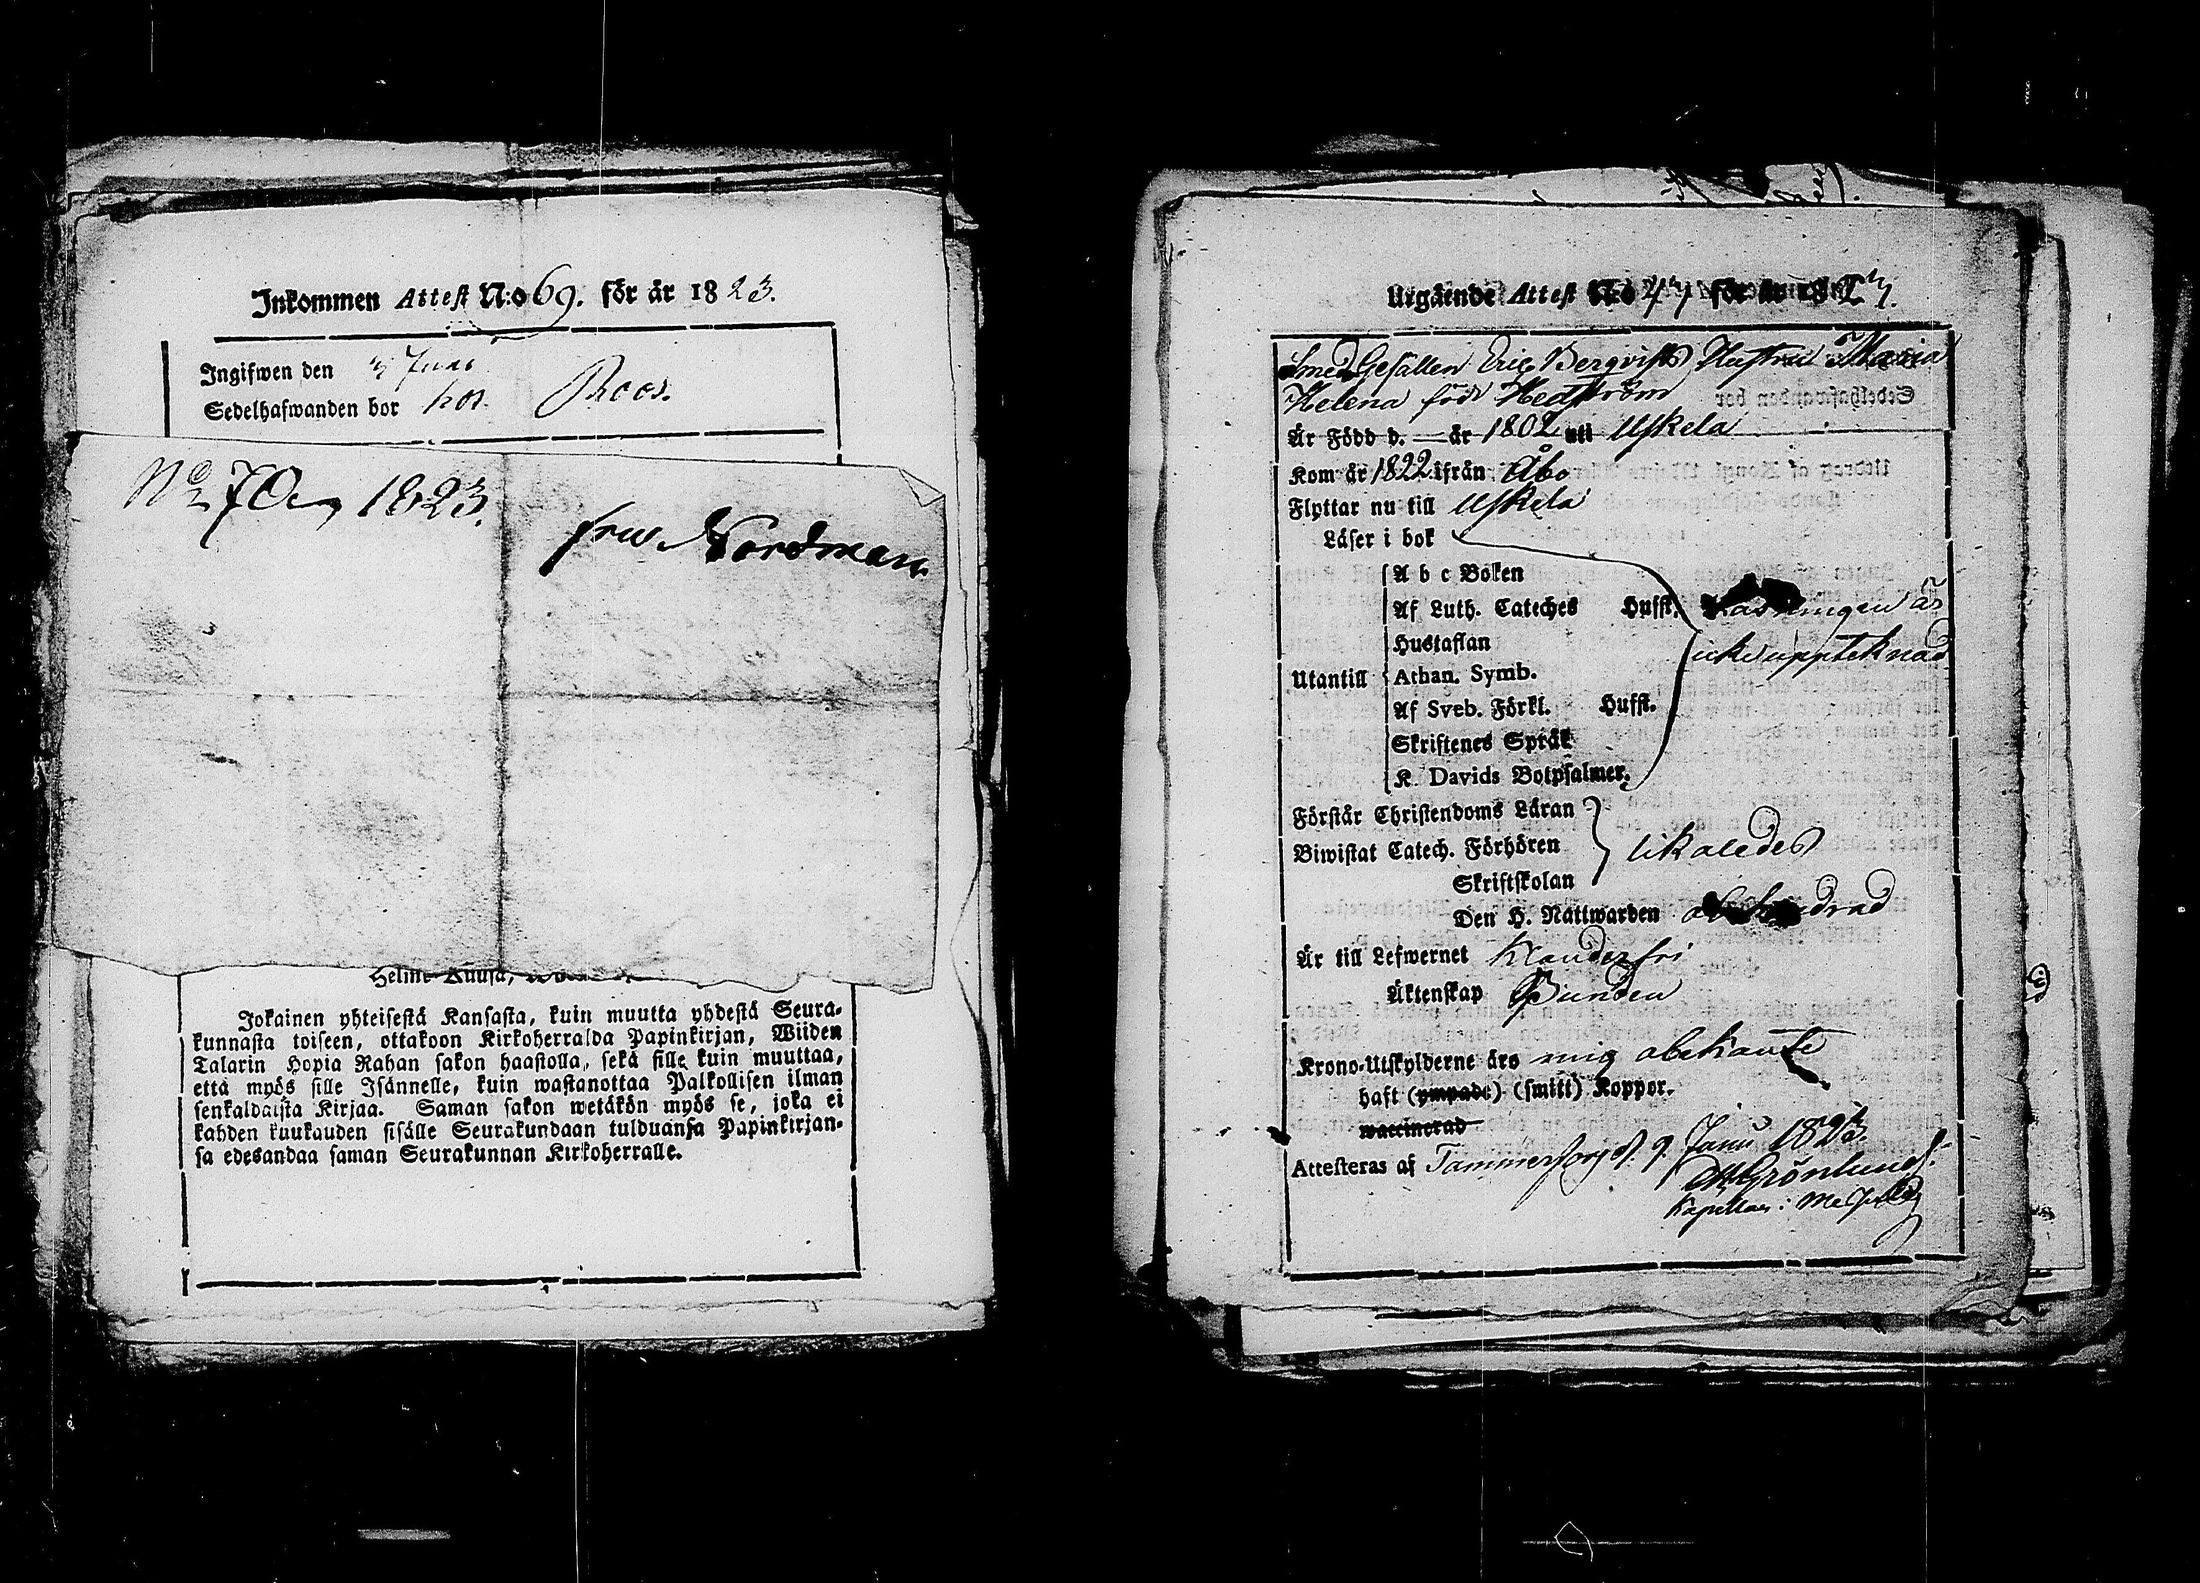 Inkommen Attest N:o 69. för år 1823.
Ingifwen den
Sedelhafwanden bor hos Roos.
No 70 1823.
fru Nordman
Jokainen yhteisestä Kansasta, kuin muutta yhdestä Seura-
kunnasta toiseen, ottakoon Kirkoherralda Papinkirjan, Wiiden
Talarin Hopia Rahan sakon haastolla, sekä sille kuin muuttaa,
että myös sille Isännelle, kuin wastanottaa Palkollisen ilman
senkaldaista Kirjaa. Saman sakon wetäkön myös se, joka ei
kahden kuukauden sisälle Seurakundaan tulduansa Papinkirjan-
sa edesandaa saman Seurakunnan Kirkoherralle.
Utgående Attest N:o för år
Smed Gesällen Eric Berqvists Hustru Maria
Helena född Hedström
Är Född d. — år 1802 uti Uskela
Kom år 1822 ifrån Åbo
Flyttar nu till Uskela
Läser i bok
A b c Boken
Af Luth. Cateches Hufst. Läsningen är
Hustaflan icke uppteknad
Utantill Athan. Symb.
Af Sveb. Förkl. Hufst.
Skriftenes Språk
K. Davids Botpsalmer.
Förstår Christendoms Läran
Biwistat Catech. Förhören likaledes
Skriftskolan
Den H. Nattwarden
Är till Lefwernet Klanderfri
Äktenskap Bunden
Krono-Utskylderne äro mig obekante
haft (ympade) (smitt) Koppor.
waccinerad
Attesteras af Tammerfors d. 9 Junii 1823.
Grönlund